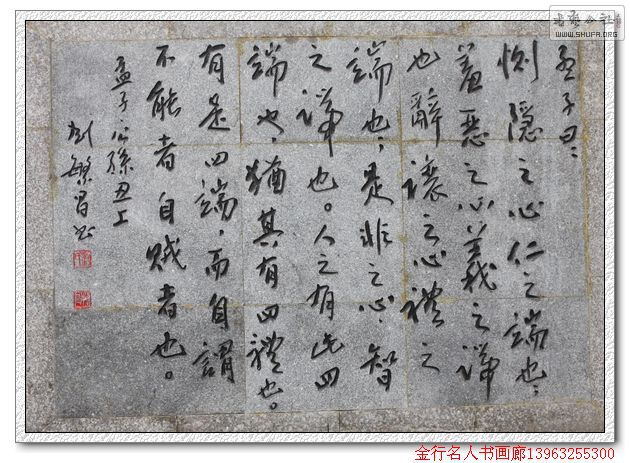 WWW.SHUFA.ORG
孟子曰:
惻隱之心仁之端也;
羞惡之心義之端
也辭讓之心禮之
端也;是非之心,智
之端也。人之有此四
端也,猶其有四體也。
有是四端,而自謂
不能者自賊者也。
孟子公孫丑上
繁昌书
金行名人书画廊13963255300